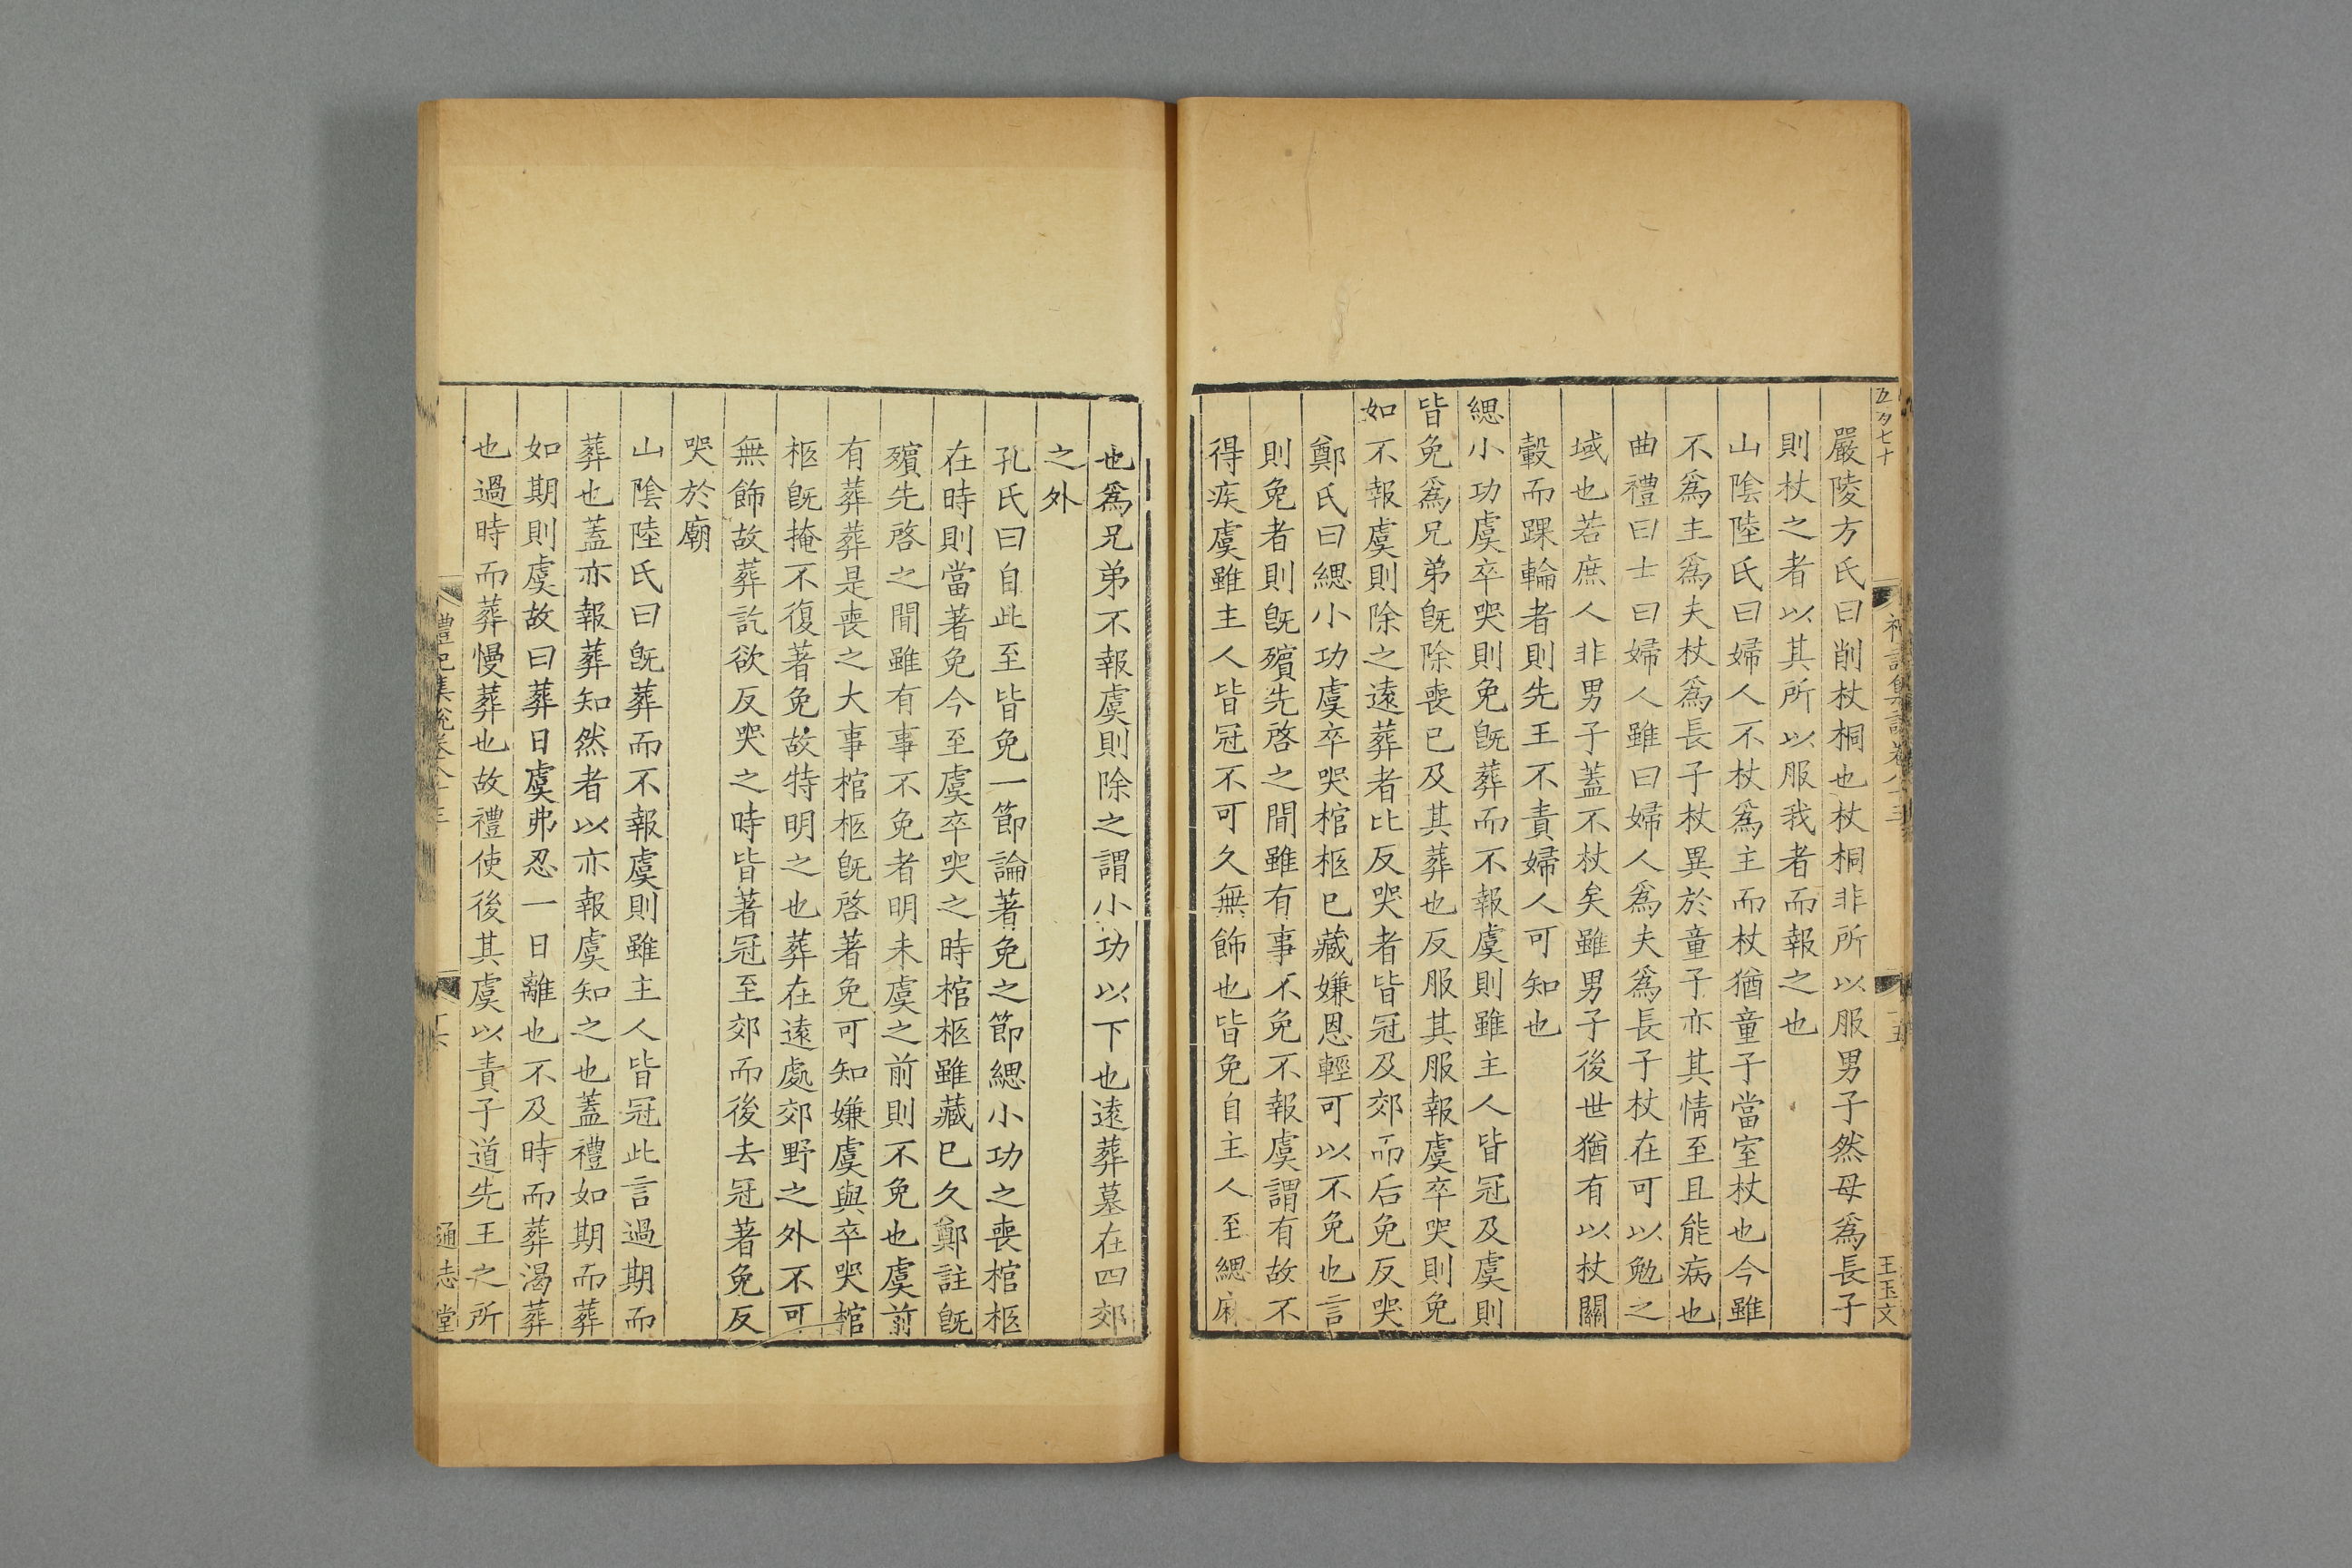 嚴陵方氏曰削杖桐也杖桐非所以服男子然母爲長子
則杖之者以其所以服我者而報之也
山陰陸氏曰婦人不杖爲主而杖猶童子當室杖也今雖
不爲主爲夫杖爲長子杖異於童子亦其情至且能病也
曲禮曰士曰婦人雖曰婦人爲夫爲長子杖在可以勉之
域也若庶人非男子蓋不杖矣雖男子後世猶有以杖關
轂而踝輪者則先王不責婦人可知也
緦小功虞卒哭則免旣葬而不報虞則雖主人皆冠及虞則
皆免爲兄弟旣除喪已及其葬也反服其服報虞卒哭則免
如不報虞則除之遠葬者比反哭者皆冠及郊而后免反哭
鄭氏曰緦小功虞卒哭棺柩已藏嫌恩輕可以不免也言
則免者則旣殯先啓之間雖有事不免不報虞謂有故不
得疾虞雖主人皆冠不可久無飾也皆免自主人至緦麻
也爲兄弟不報虞則除之謂小功以下也遠葬墓在四郊
之外
孔氏曰自此至皆免一節論著免之節緦小功之喪棺柩
在時則當著免今至虞卒哭之時棺柩雖藏已久鄭註旣
殯先啓之間雖有事不免者明未虞之前則不免也虞前
有葬葬是喪之大事棺柩旣啓著免可知嫌虞與卒哭棺
柩旣掩不復著免故特明之也葬在遠處郊野之外不可
無飾故葬訖欲反哭之時皆著冠至郊而後去冠著免反
哭於廟
山陰陸氏曰旣葬而不報虞則雖主人皆冠此言過期而
葬也蓋亦報葬知然者以亦報虞知之也蓋禮如期而葬
如期則虞故曰葬日虞弗忍一日離也不及時而葬渴葬
也過時而葬慢葬也故禮使後其虞以責子道先王之所
禮記集說卷八十三
通志堂